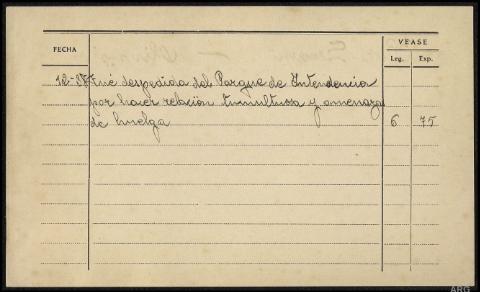 FECHA
VEASE
Leg. Exp.
12-37 Fué despedida del Parque de Intendencia
por hacer relación tumultuosa y amenaza
de huelga 6 75
ARG